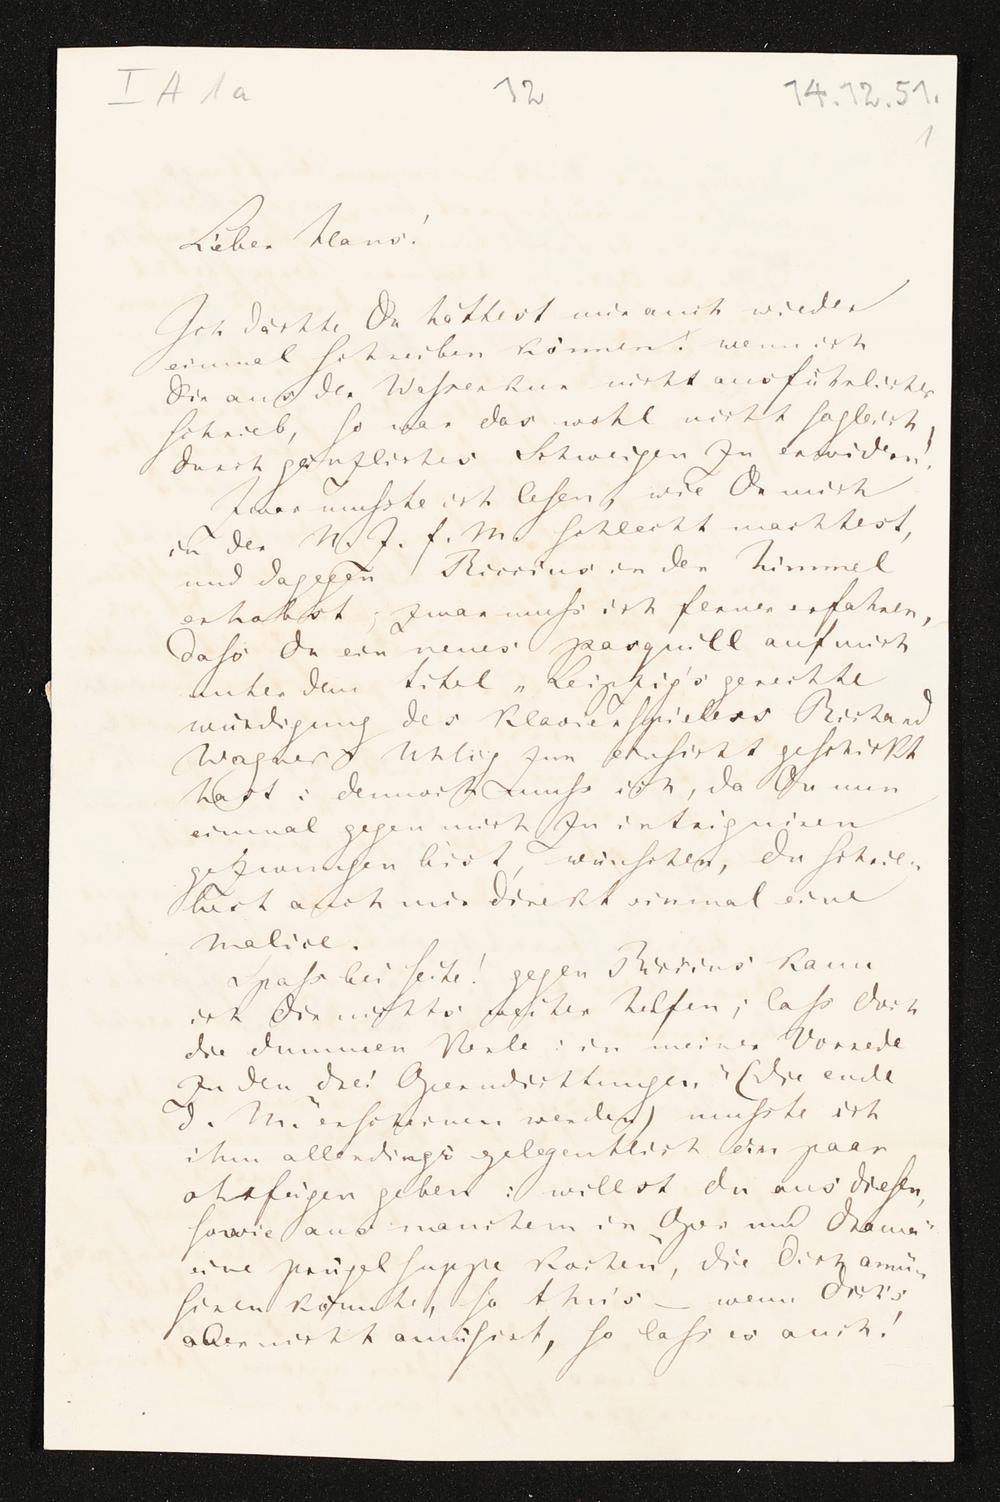 I A 1a
12
14.12.51.
1
Lieber Hans!
Ich dächte Du hättest mir auch wieder
einmal schreiben können! wenn ich
Dir aus der Wasserkur nicht ausführlicher
schrieb, so war das wohl nicht sogleich
durch gänzliches Schweigen zu erwidern!
Zwar musste ich lesen, wie Du mich
in der N. Z. f. M. schlecht machtest,
und dagegen Riccius in den Himmel
erhobst; zwar muss ich ferner erfahren,
dass du ein neues pasquill auf mich
unter dem titel „Leipzig's gerechte
würdigung des Klavierspielers Richard
Wagner" Uhlig zur einsicht geschickt
hast: dennoch muss ich, da Du nun
einmal gegen mich zu intriguiren
gezwungen bist, wünschen, du schrie-
best auch mir direkt einmal eine
malice.
Spass bei seite! gegen Riccius kann
ich Dir nichts weiter helfen; lass doch
die dummen Kerle: in meiner Vorrede
zu den drei Operndichtungen" (die ende
d. M. erscheinen werden) musste ich
ihm allerdings gelegentlich ein paar
ohrfeigen geben: willst du aus diesen,
sowie aus manchem in Oper und Drama"
eine prügelsuppe kochen, die Dich amü-
siren könnte, so thu's — wenn Dich's
aber nicht amüsirt, so lass es auch!